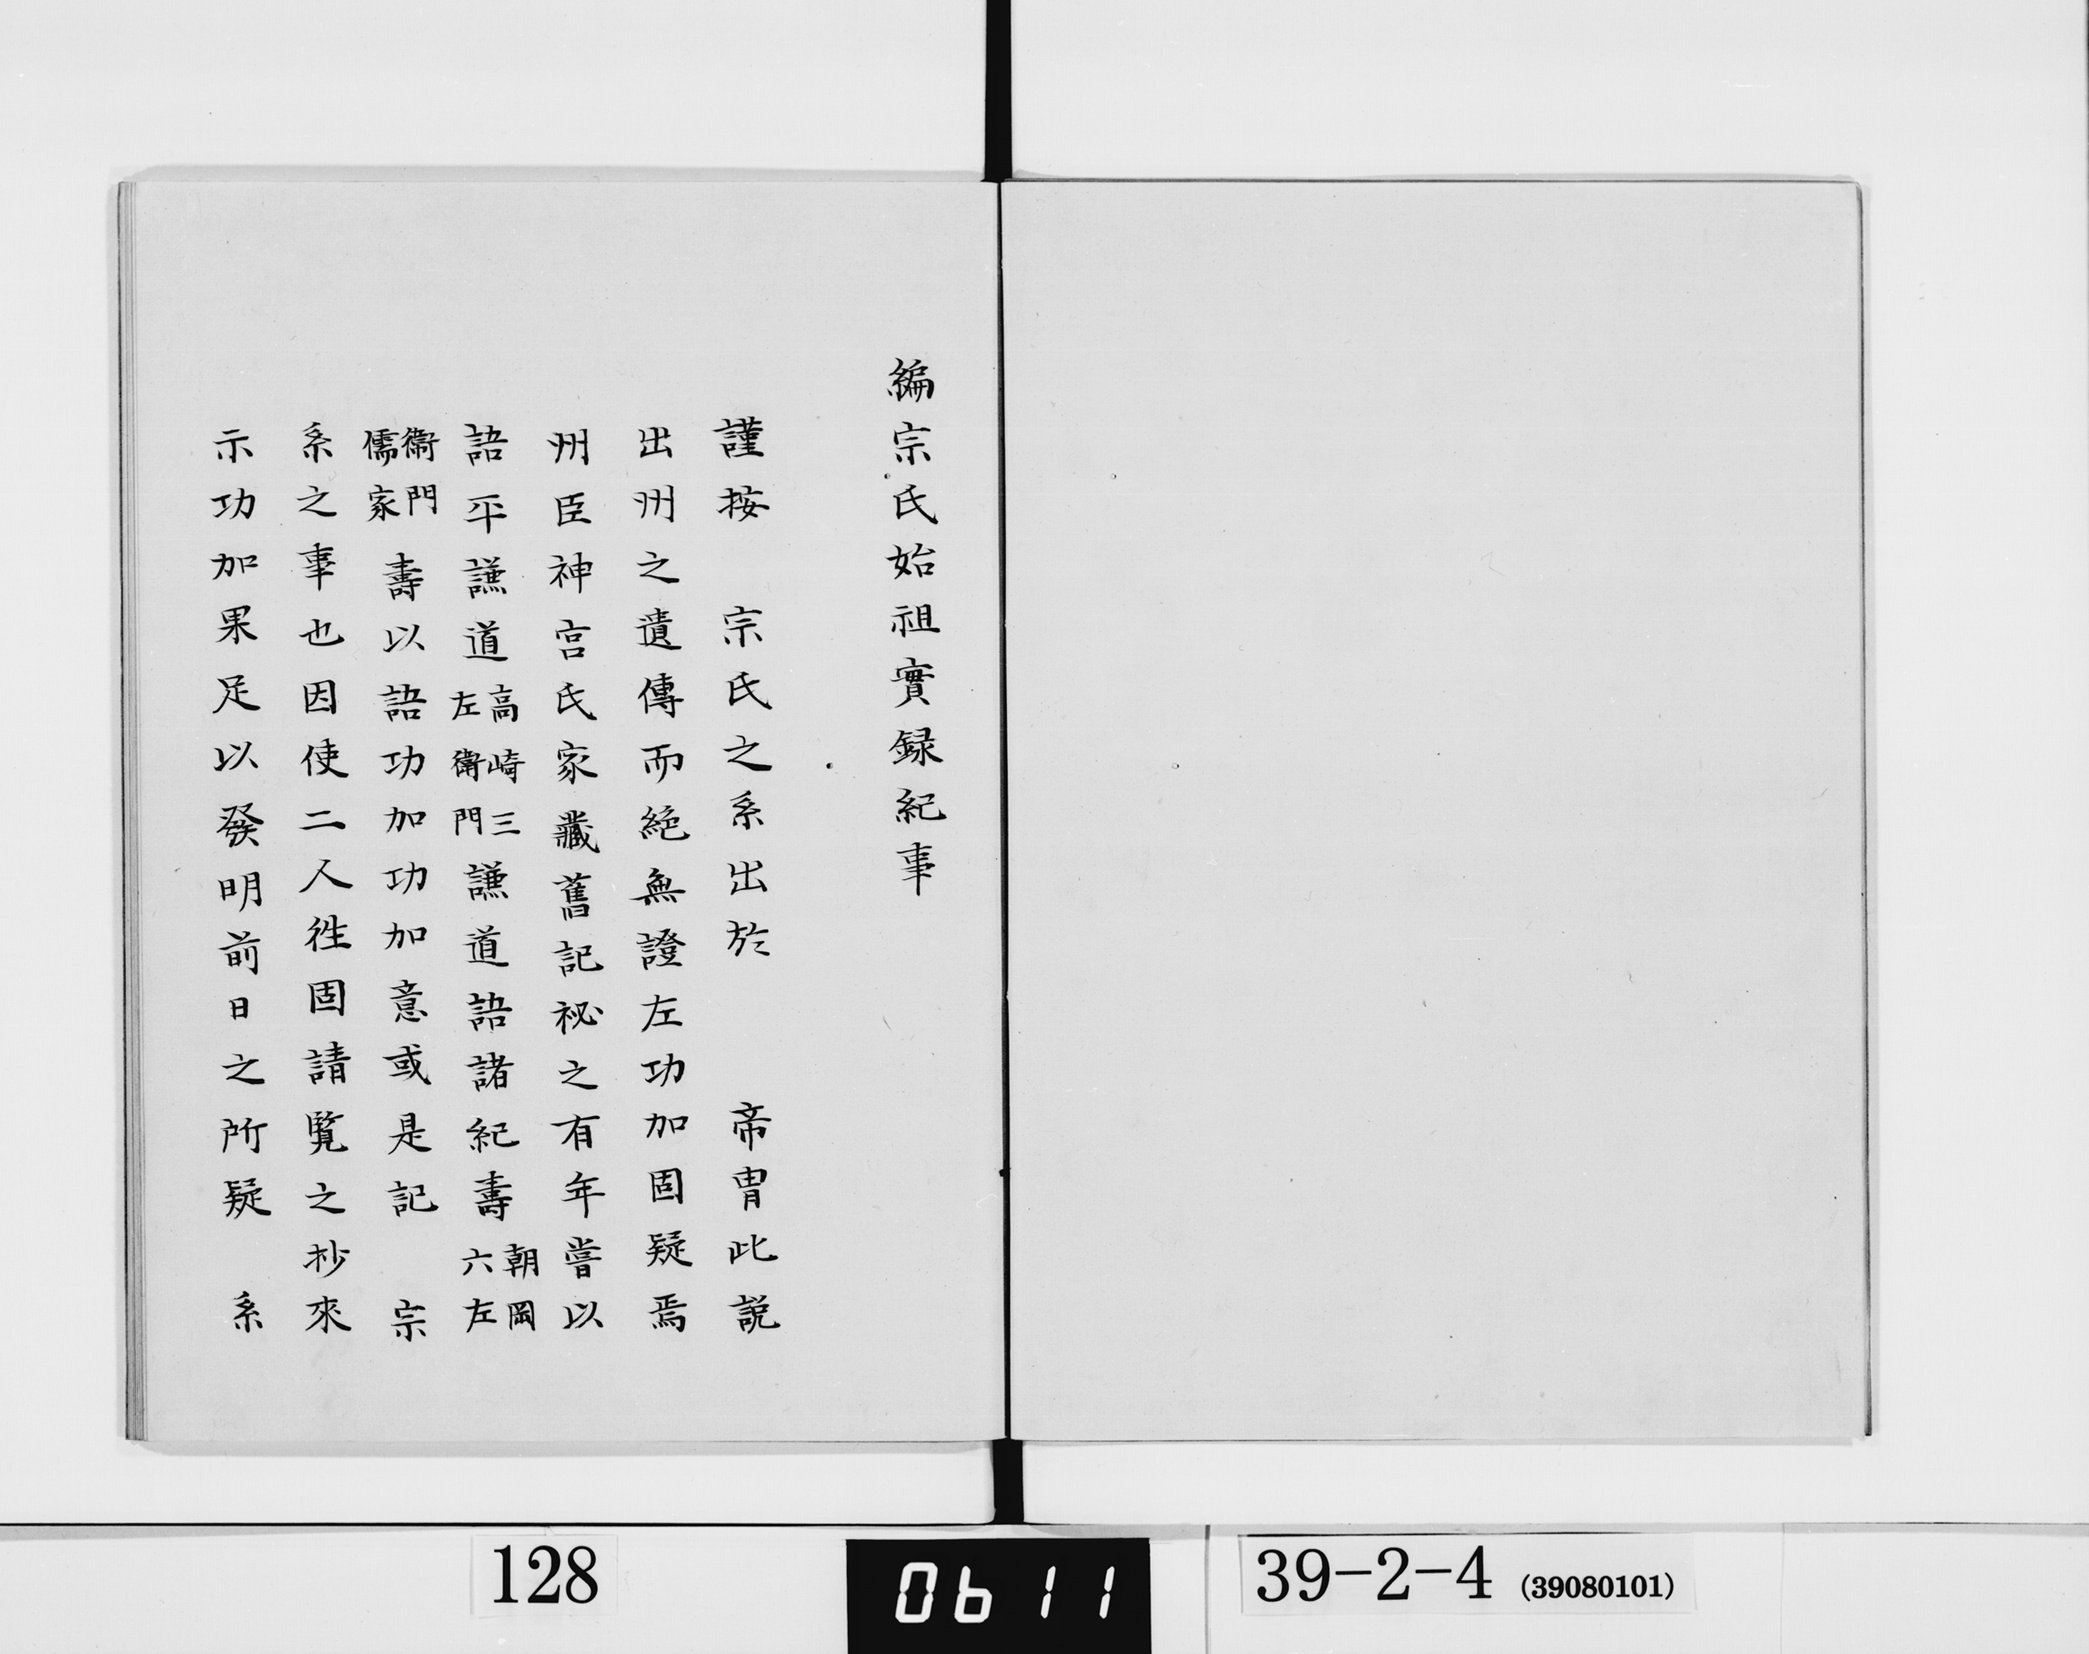 編宗氏始祖實録紀事
謹按　宗氏之系出於　　帝冑此説
出州之遺傳而絶無證左功加固疑焉
州臣神宮氏家藏舊記祕之有年嘗以
語平謙道高崎三左衛門謙道語諸紀壽朝岡六左
衛門儒家壽以語功加功加意或是記　宗
系之事也因使二人徃固請覧之抄來
示功加果足以發明前日之所疑　系
128
0611
39-2-4 (39080101)